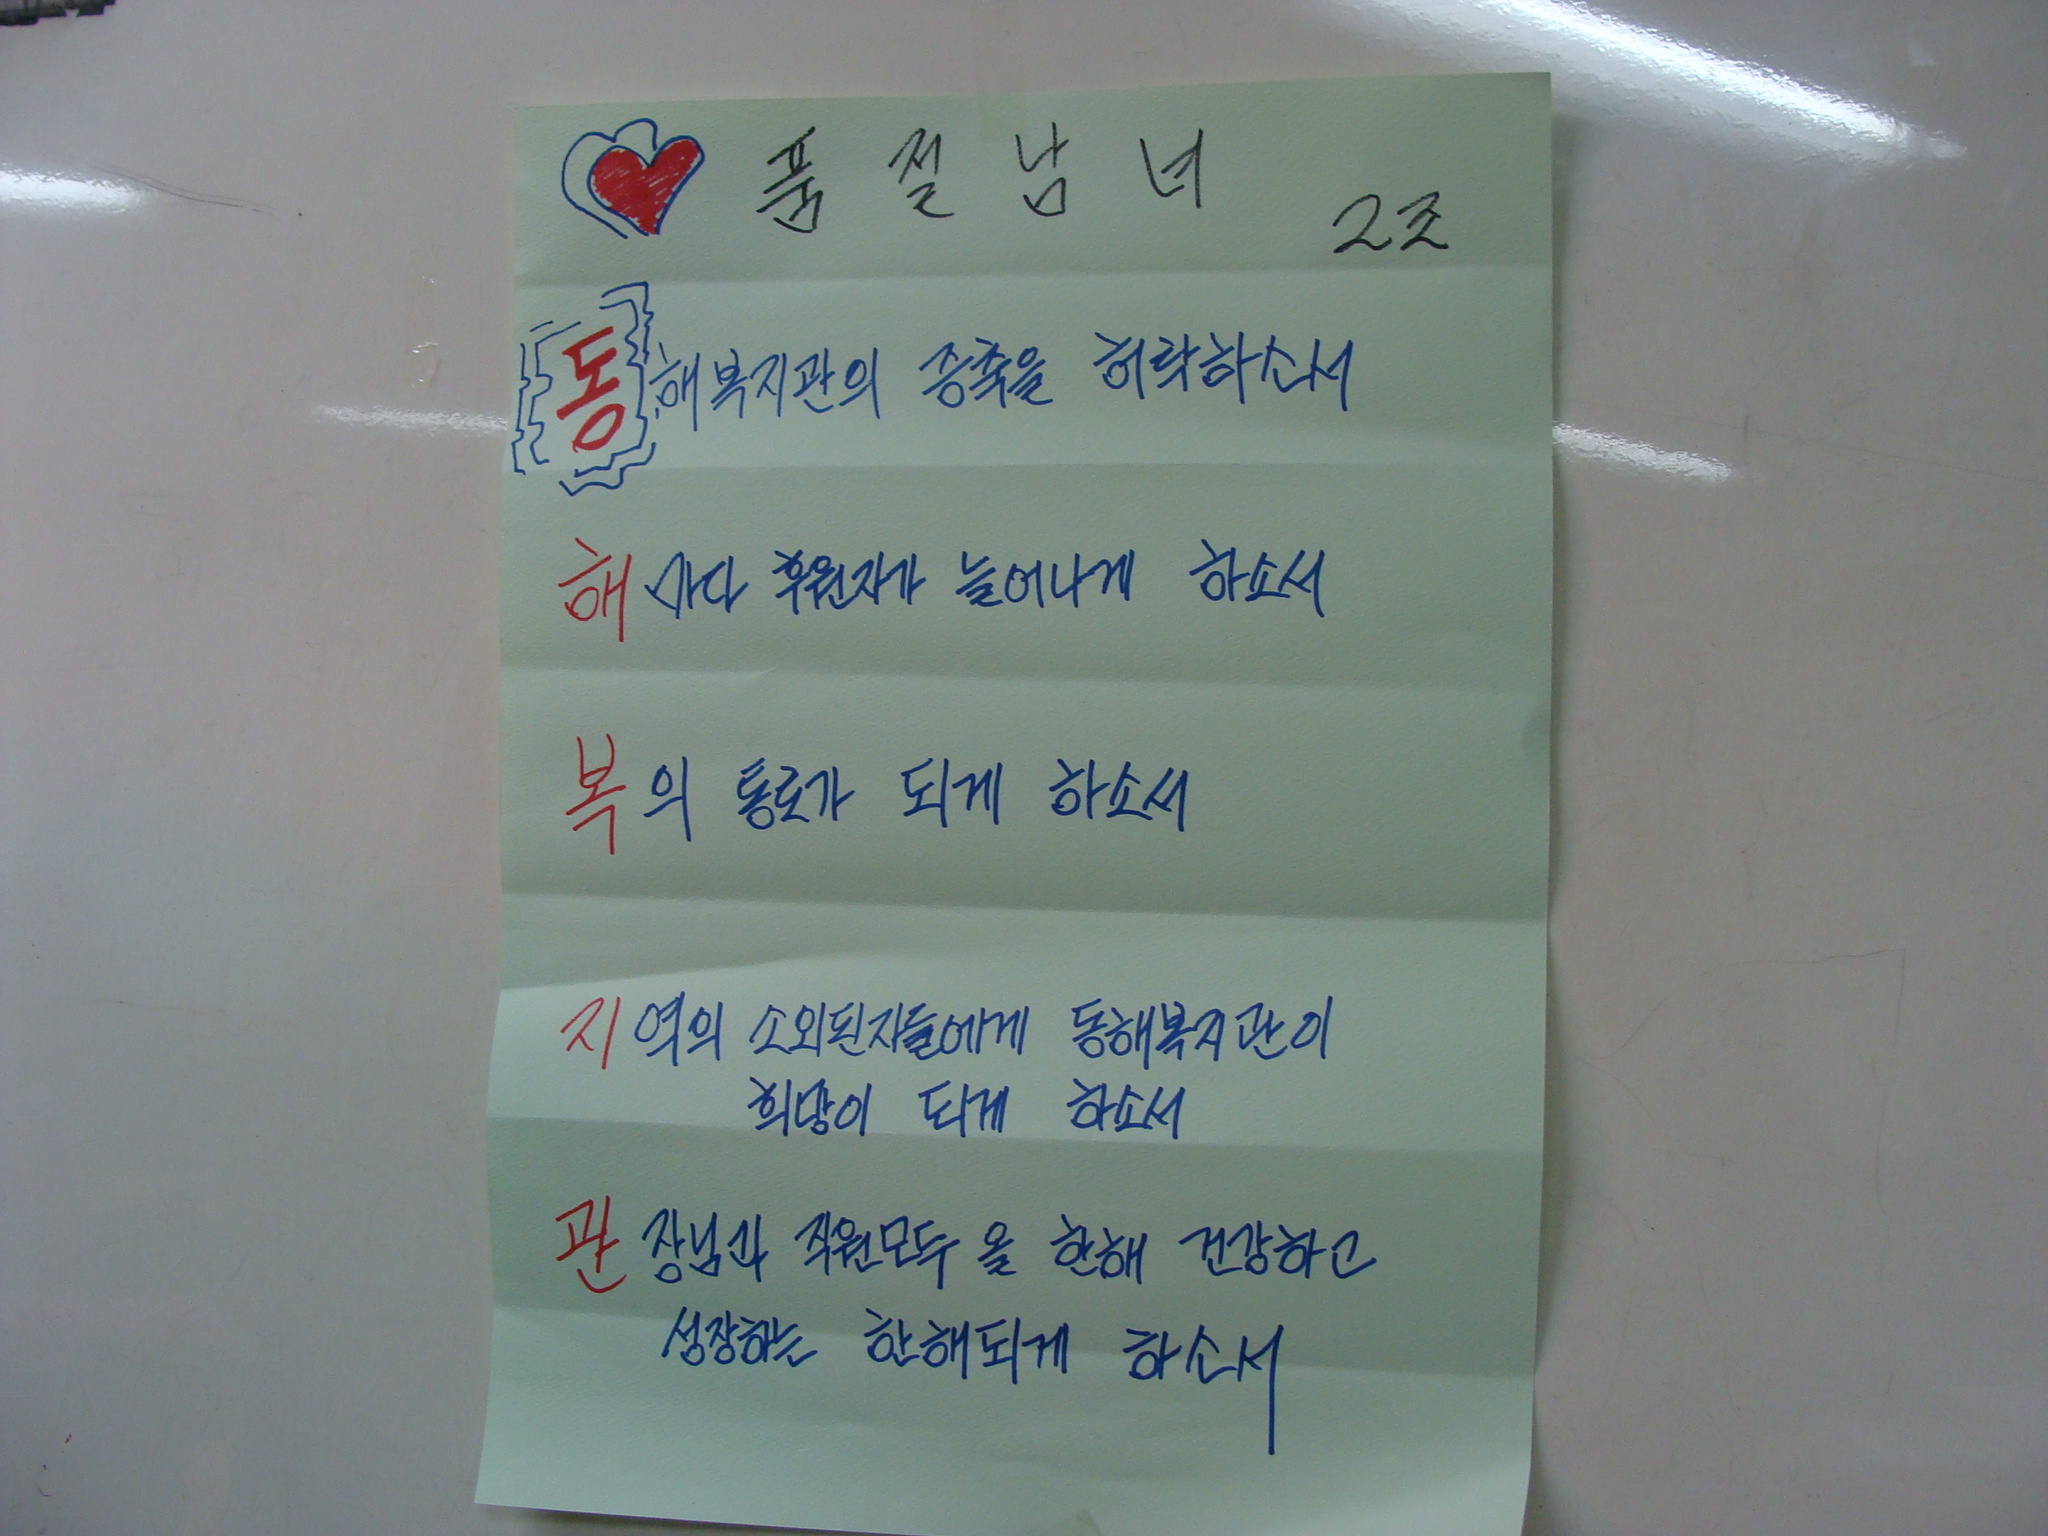 품절남녀
2조
동해복지관의 증축을 허락하소서
해마다 후원자가 늘어나게 하소서
복의 통로가 되게 하소서
지역의 소외된자들에게 동해복지관이
희망이 되게 하소서
관장님과 직원모두 올 한해 건강하고
성장하는 한해되게 하소서